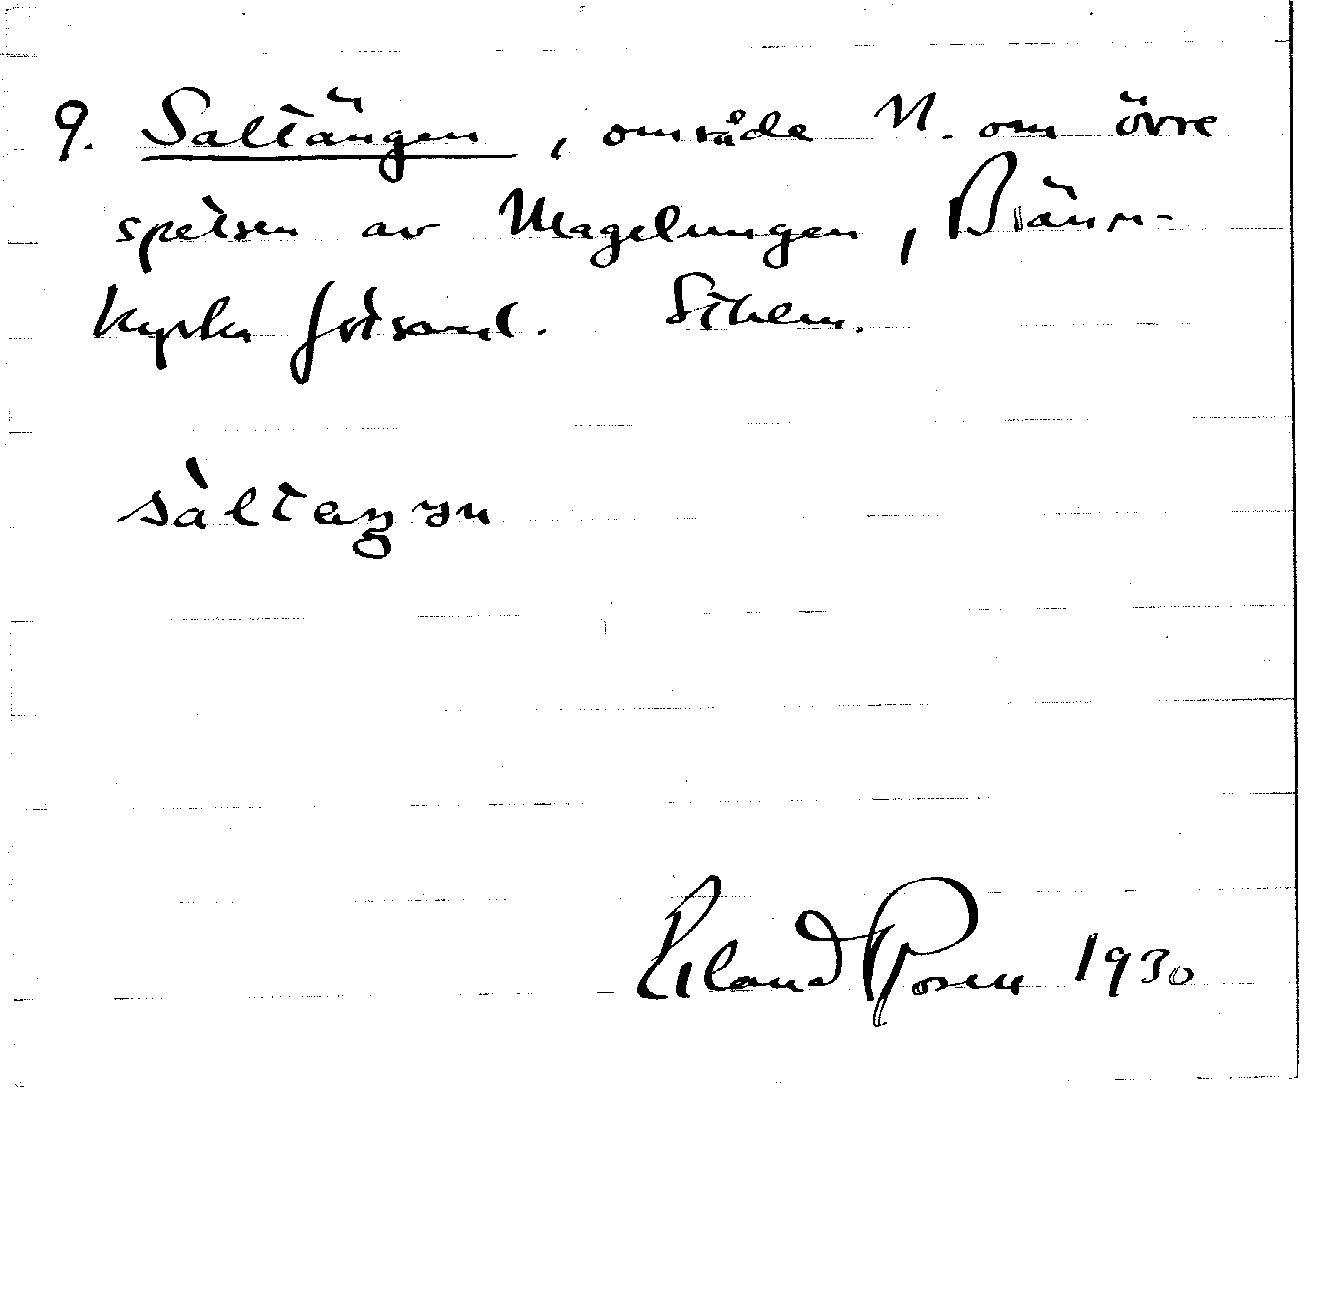 9. Saltängen, område N. om övre
spetsen av Magelungen, Bränn-
kyrka församl. Sthlm.
sàltaŋən
Erland Rosell 1930